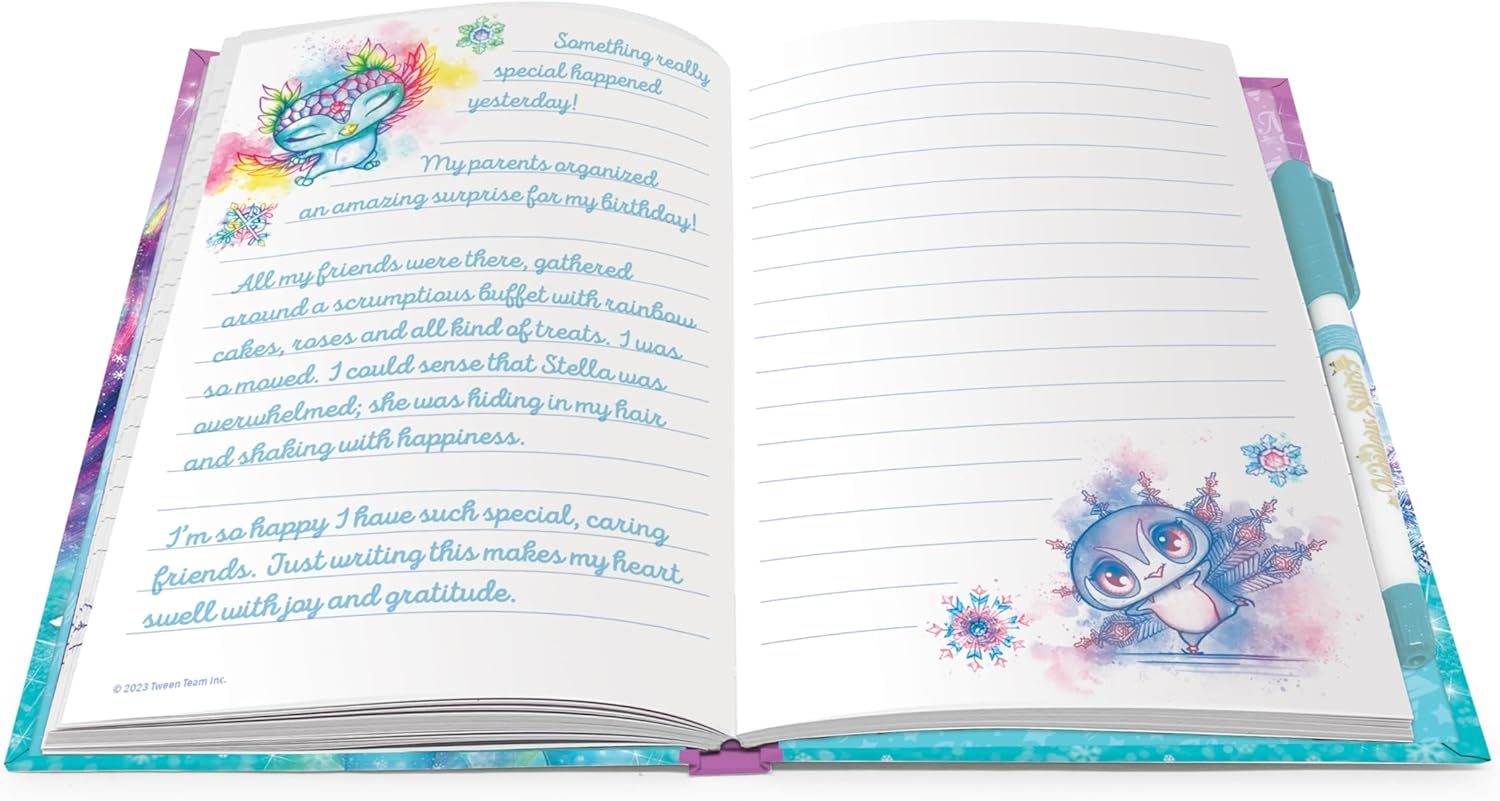 Something really
special happened
yesterday!
My parents organized
an amazing surprise for my birthday!
All my friends were there, gathered
around a scrumptious buffet with rainbow
cakes, roses and all kind of treats. I was
so moved. I could sense that Stella was
overwhelmed; she was hiding in my hair
and shaking with happiness.
I'm so happy I have such special, caring
friends. Just writing this makes my heart
swell with joy and gratitude.
© 2023 Tween Team Inc.
N
Nebulous Stars